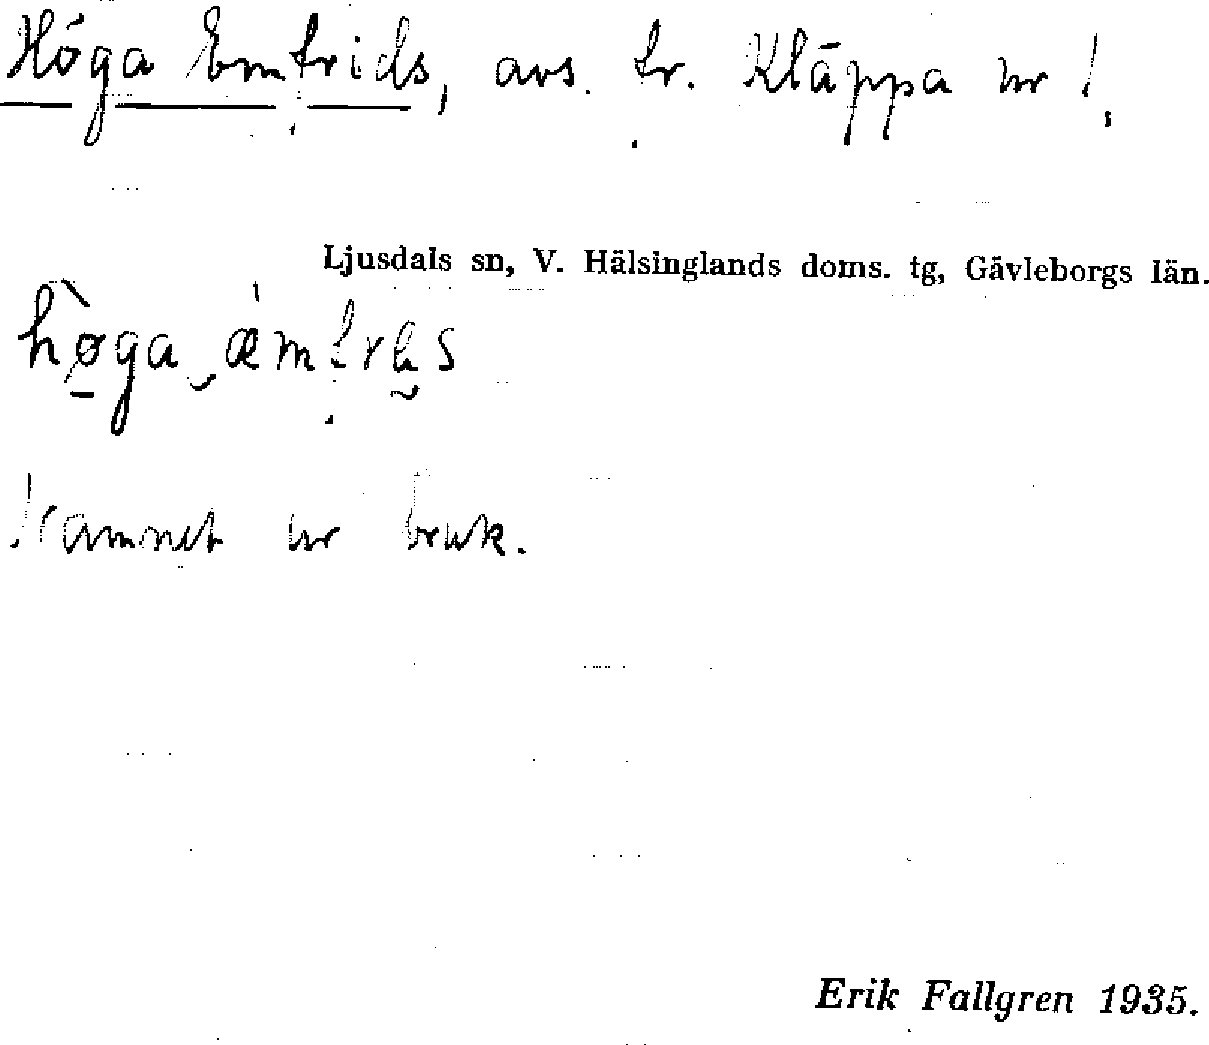 Höga Emtrids, avs. fr. Kläppa nr 1.
Ljusdals sn, V. Hälsinglands doms. tg, Gävleborgs län.
Namnet ur bruk.
Erik Fallgren 1935.